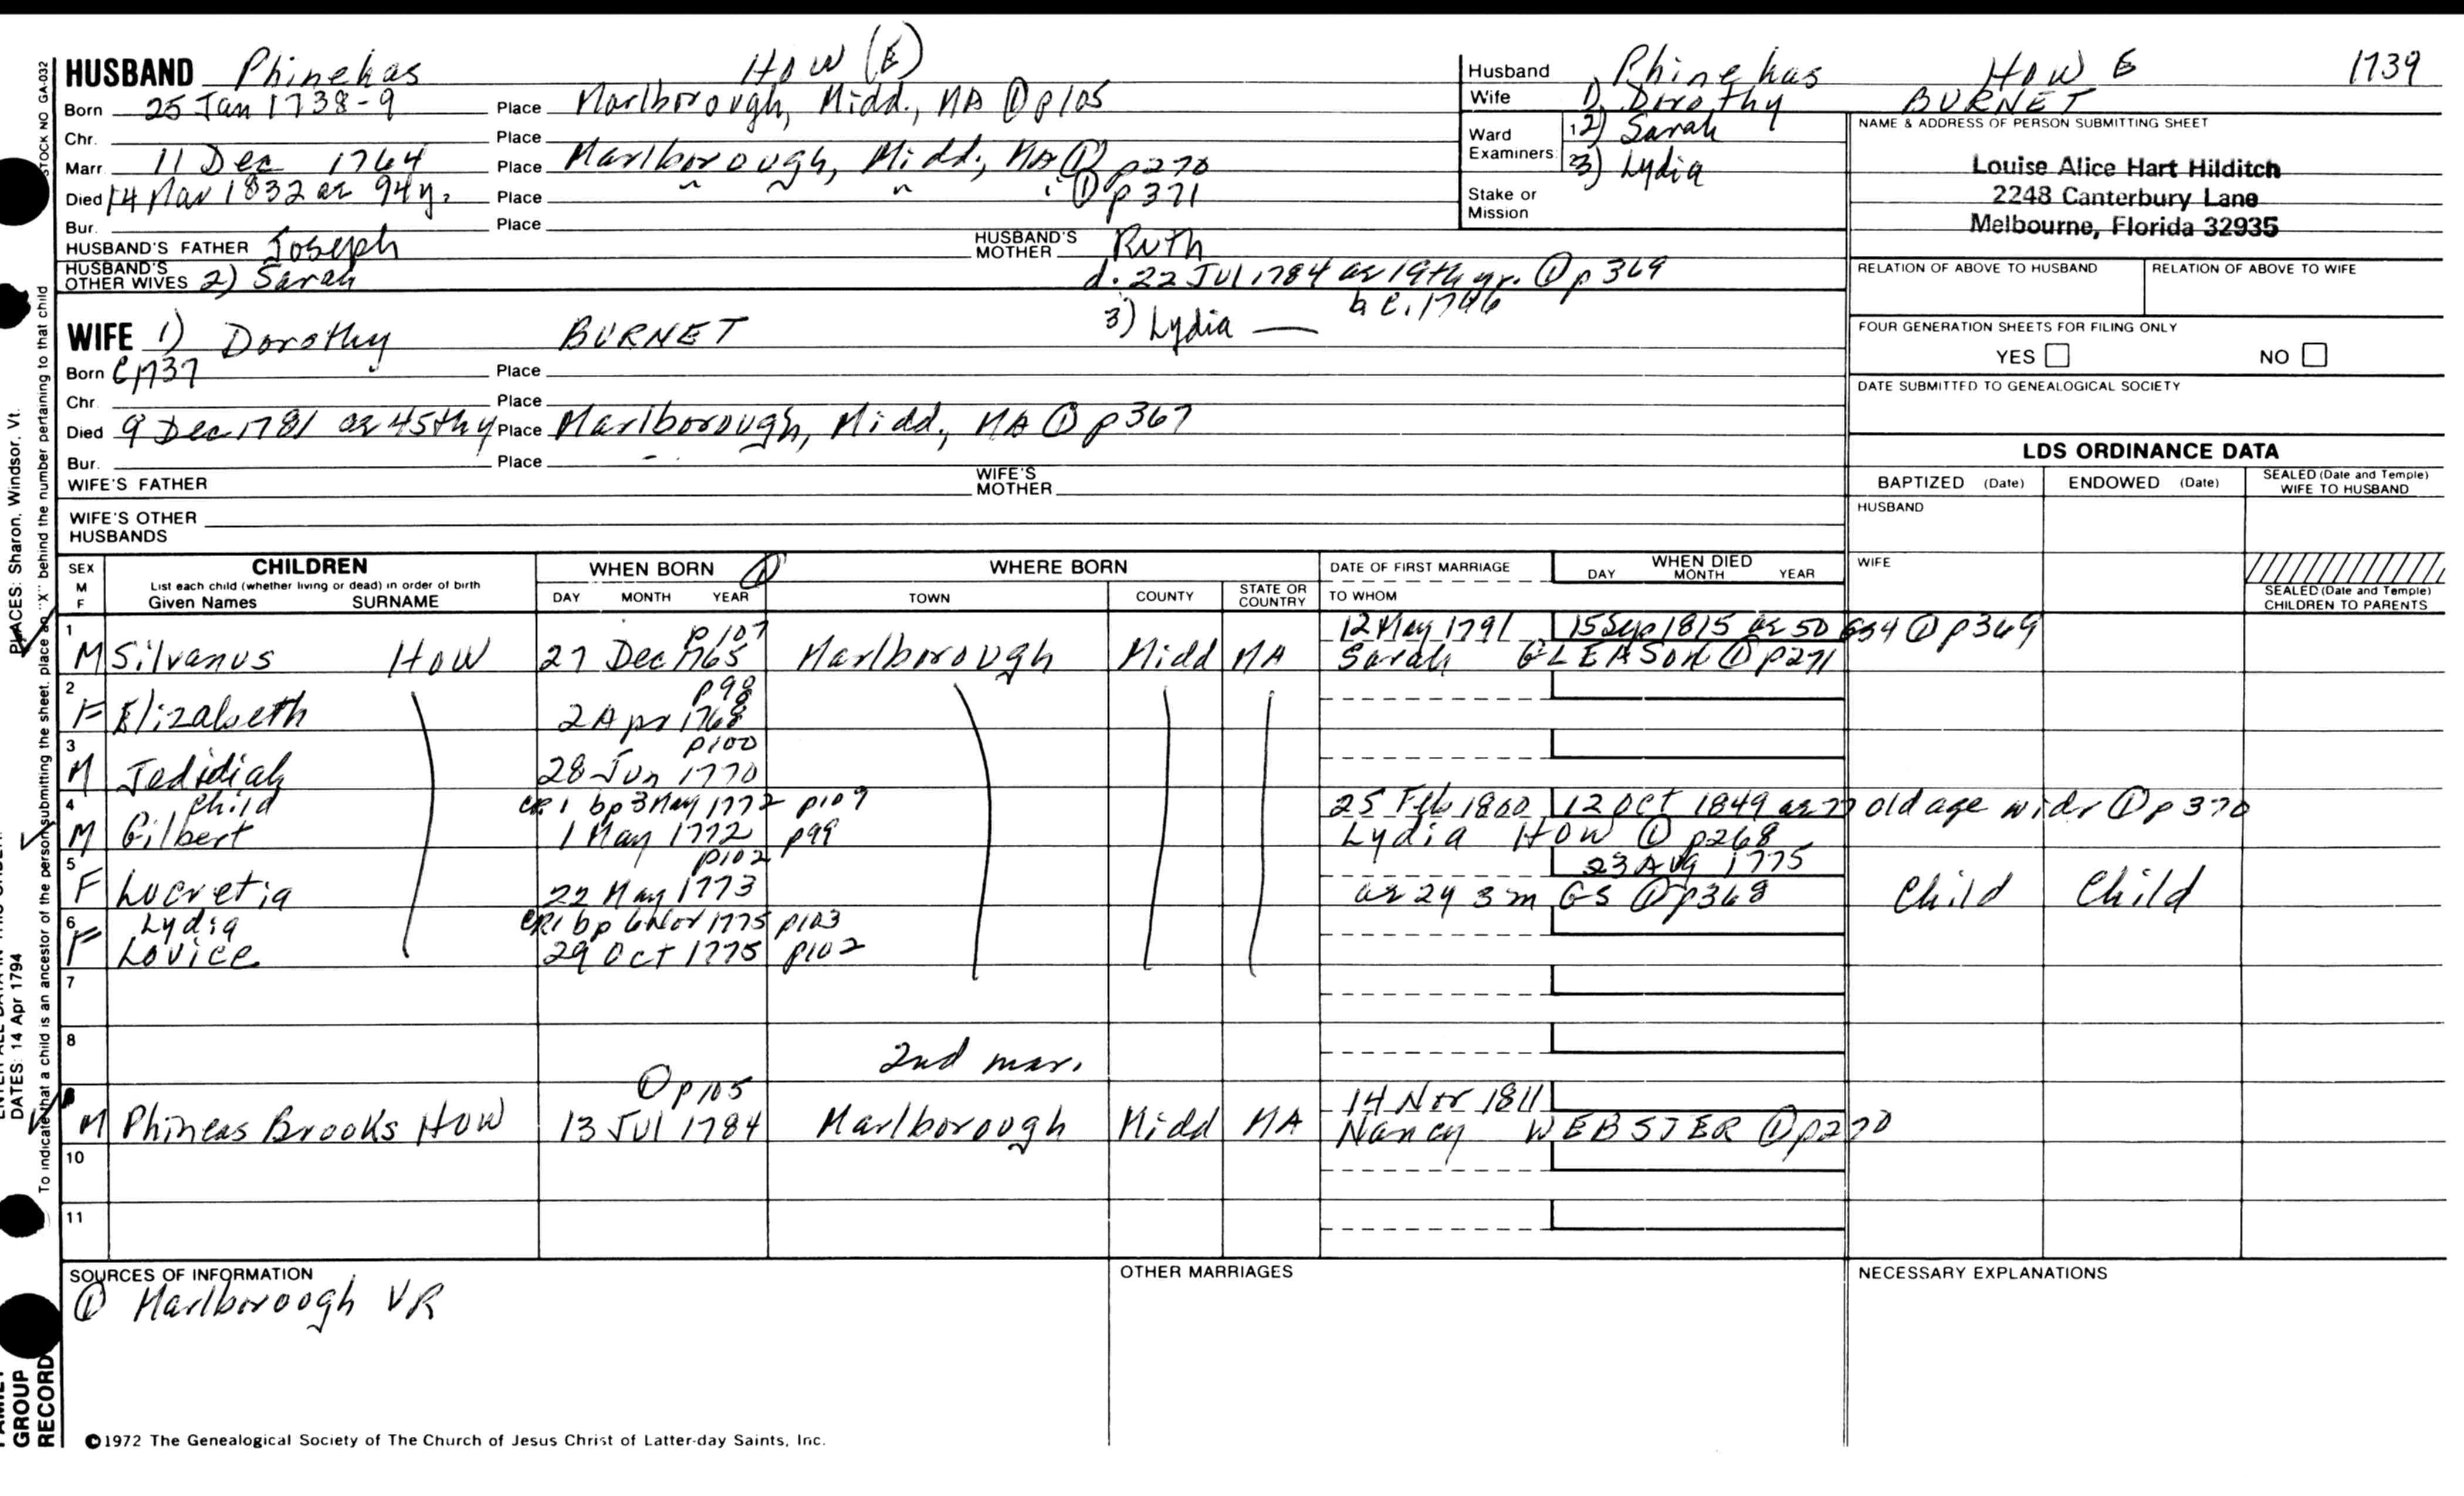 HUSBAND Phinehas HOW (E)
Born 25 Jan 1738-9 Place Marlborough, Midd., MA ① p105
Chr. Place
Marr. 11 Dec 1764 Place Marlborough, Midd., MA ① p270
Died 14 Mar 1832 ae 94y. Place " " " " ① p371
Bur. Place
HUSBAND'S FATHER Joseph HUSBAND'S MOTHER Ruth
HUSBAND'S OTHER WIVES 2) Sarah d. 22 Jul 1784 ae 19th yr. ① p369
b c.1746
3) Lydia —
WIFE 1) Dorothy BURNET
Born C1737 Place
Chr. Place
Died 9 Dec 1781 ae 45thy Place Marlborough, Midd., MA ① p367
Bur. Place
WIFE'S FATHER WIFE'S MOTHER
WIFE'S OTHER HUSBANDS
Husband Phinehas HOW E 1739
Wife 1) Dorothy BURNET
Ward Examiners 1 2) Sarah
2 3) Lydia
Stake or Mission
NAME & ADDRESS OF PERSON SUBMITTING SHEET
Louise Alice Hart Hilditch
2248 Canterbury Lane
Melbourne, Florida 32935
RELATION OF ABOVE TO HUSBAND RELATION OF ABOVE TO WIFE
FOUR GENERATION SHEETS FOR FILING ONLY
YES NO
DATE SUBMITTED TO GENEALOGICAL SOCIETY
LDS ORDINANCE DATA
BAPTIZED (Date) ENDOWED (Date) SEALED (Date and Temple) WIFE TO HUSBAND
HUSBAND
WIFE
SEALED (Date and Temple) CHILDREN TO PARENTS
SEX M F CHILDREN WHEN BORN ① WHERE BORN DATE OF FIRST MARRIAGE WHEN DIED
List each child (whether living or dead) in order of birth
Given Names SURNAME DAY MONTH YEAR TOWN COUNTY STATE OR COUNTRY TO WHOM DAY MONTH YEAR
1 p107 12 May 1791 15 Sep 1815 ae 50 ① p369
M Silvanus HOW 27 Dec 1765 Marlborough Midd MA Sarah GLEASON ① p271
2 p98
F Elizabeth 2 Apr 1768
3 p100
M Jedidiah 28 Jun 1770
4 Child CR1 bp 3 May 1772 p109 25 Feb 1800 12 Oct 1849 ae 77 old age widr ① p370
M Gilbert 1 May 1772 p99 Lydia HOW ① p268
5 p102 23 Aug 1775
F Lucretia 22 May 1773 ae 2y 3m GS ① p368 Child Child
6 Lydia CR1 bp 6 Nov 1775 p103
F Lovice 29 Oct 1775 p102
7
8 2nd mar.
① p105 14 Nov 1811
M Phineas Brooks HOW 13 Jul 1784 Marlborough Midd MA Nancy WEBSTER ① p270
10
11
SOURCES OF INFORMATION OTHER MARRIAGES NECESSARY EXPLANATIONS
① Marlborough VR
©1972 The Genealogical Society of The Church of Jesus Christ of Latter-day Saints, Inc.
STOCK NO GA-032
To indicate that a child is an ancestor of the person submitting the sheet, place an "X" behind the number pertaining to that child
PLACES: Sharon, Windsor, Vt.
DATES: 14 Apr 1794
GROUP RECORD